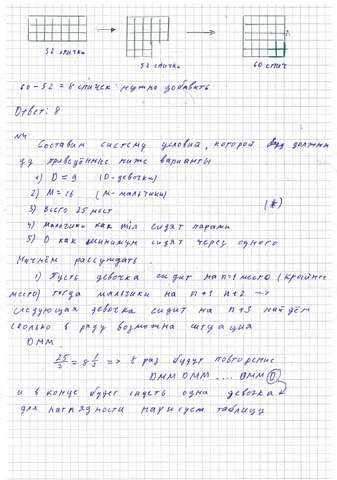 52 спички
52 спички
60 спич
60 - 52 = 8 спичек нужно добавить
Ответ: 8
№4
Составим систему условий, которой должны
приведённые ниже варианты
1) D = 9 (D - девочки)
2) M = 16 (M - мальчики)
3) Всего 25 мест
4) Мальчики как сидят парами
5) D как минимум сидят через одного
Начнём рассуждать
1) Пусть девочка сидит на n=1 место (крайнее
место) тогда мальчики на n+1 n+2 →
следующая девочка сидит на n+3 найдём
сколько в ряду возможна ситуация
DMM
25/3 = 8 1/3 => 8 раз будут повторение
DMM DMM .... DMM D
и в конце будет сидеть одна девочка
для наглядности нарисуем таблицу